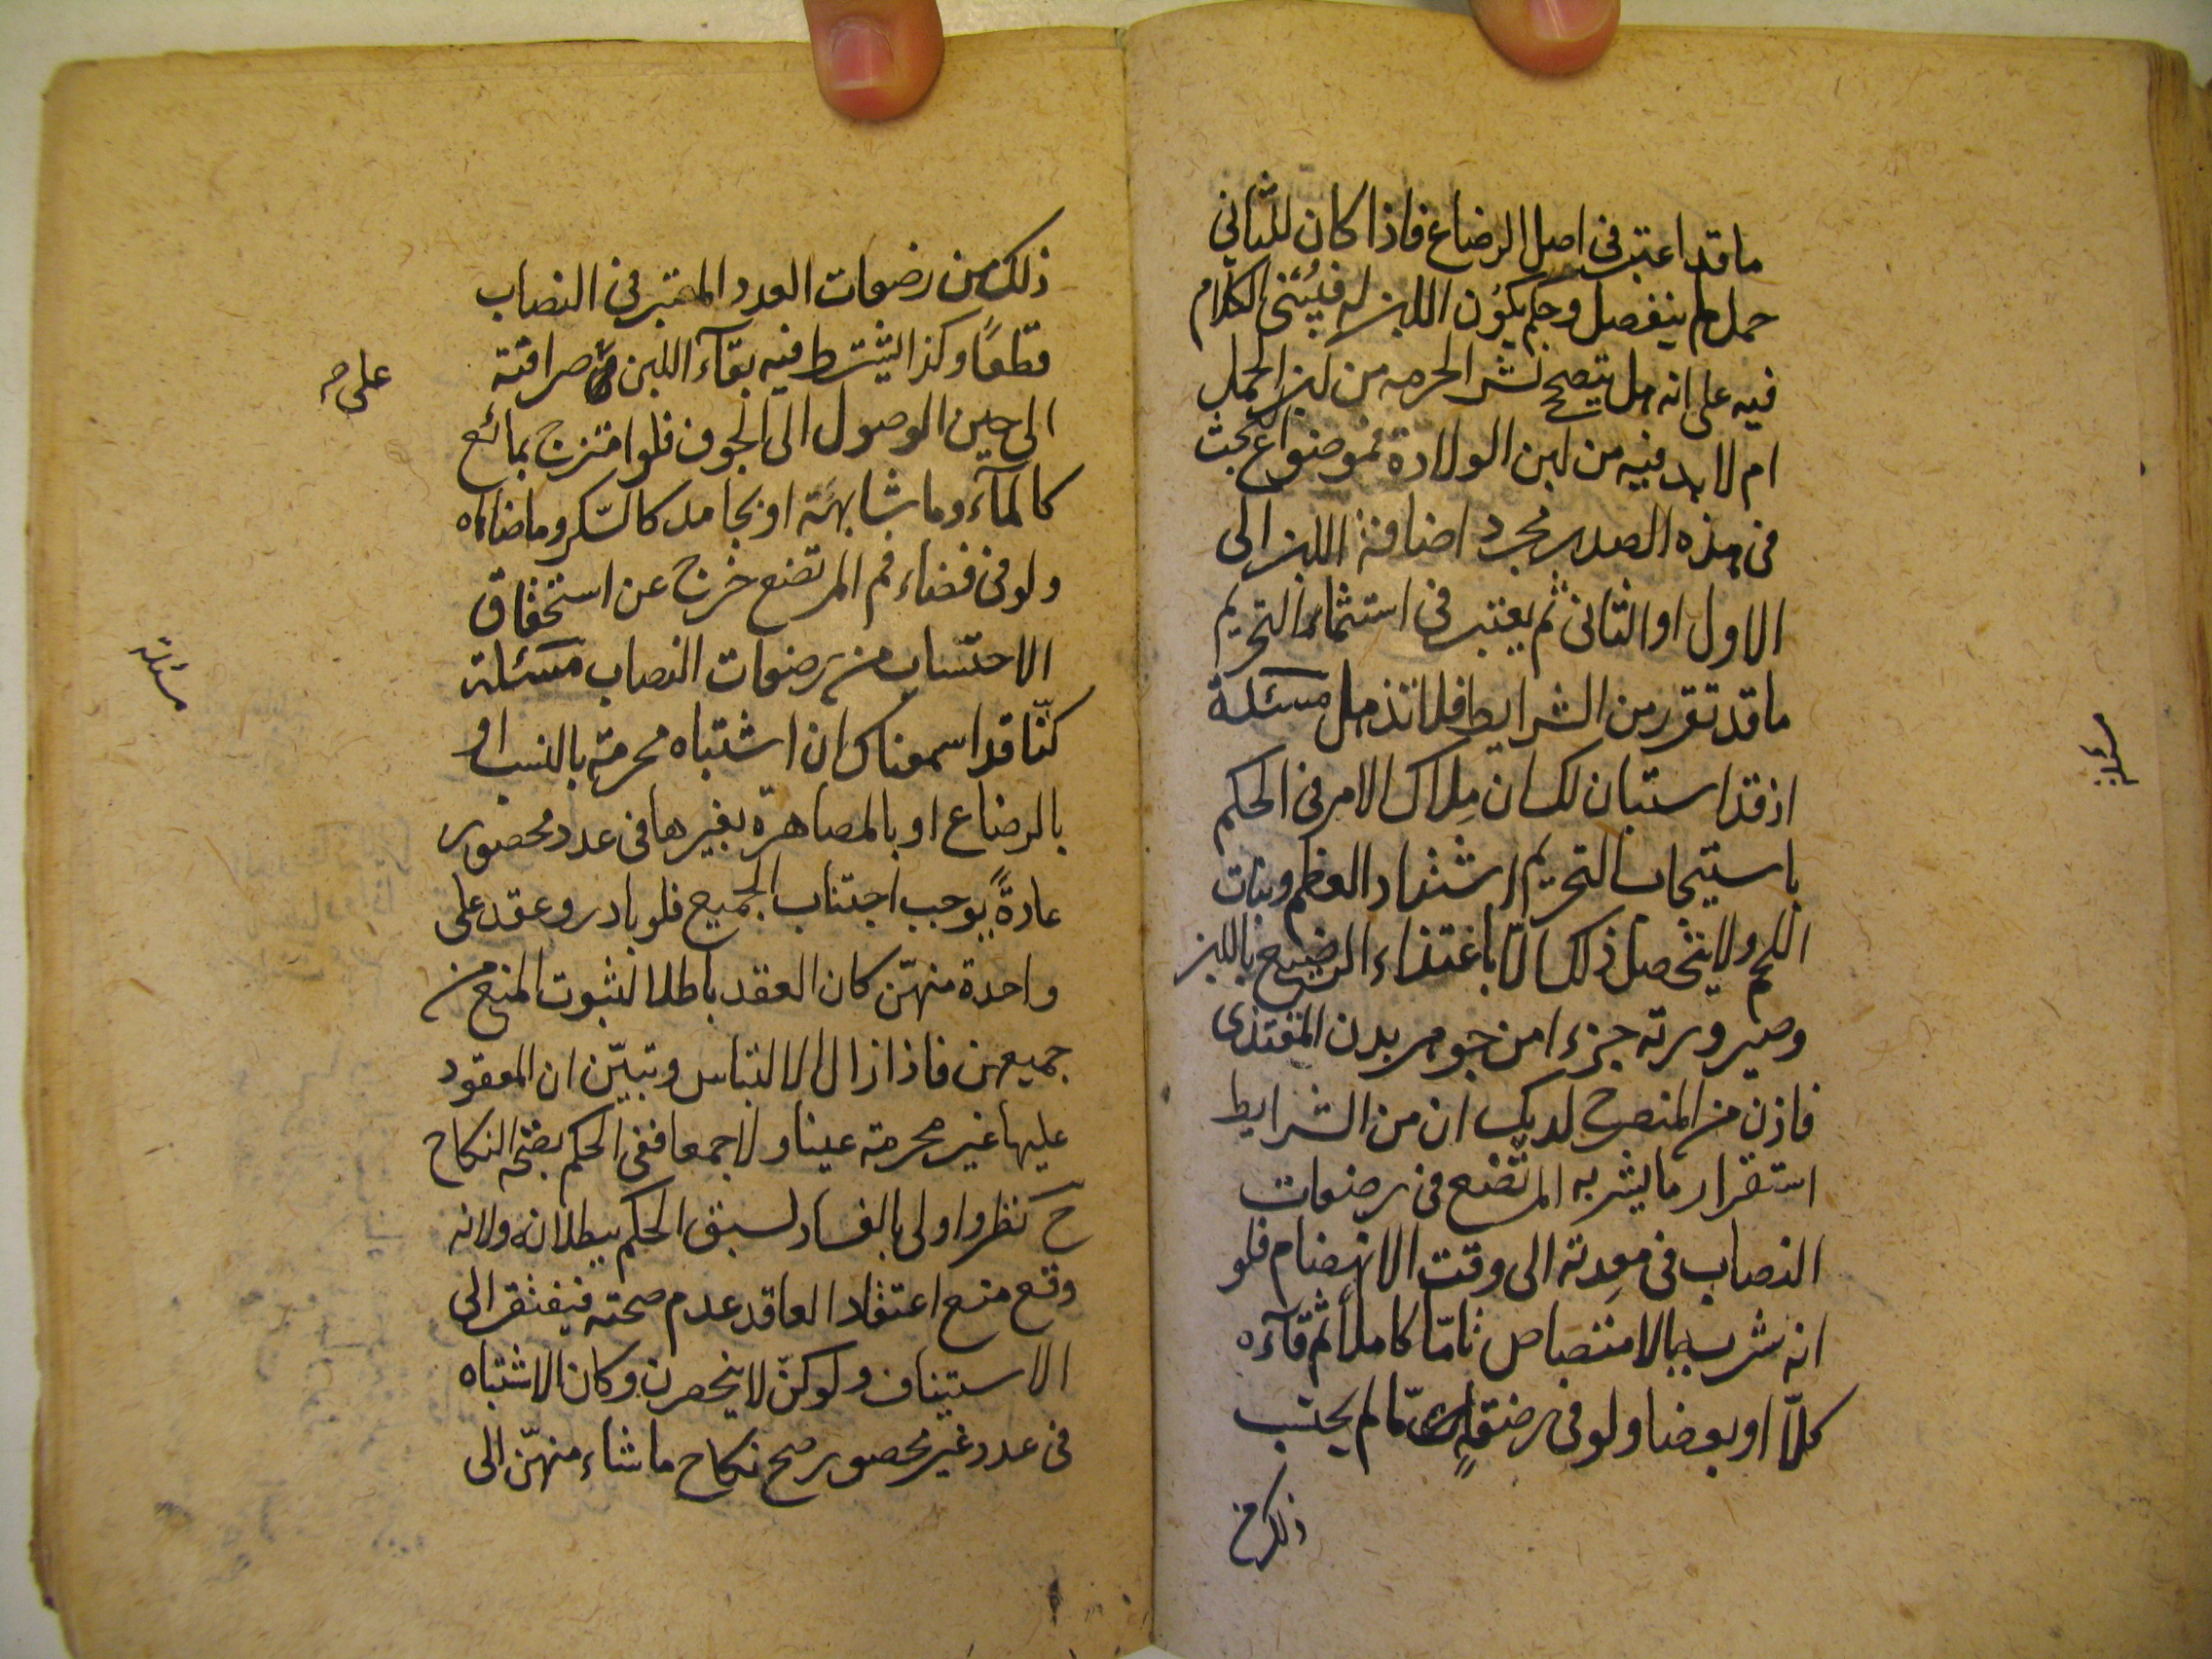 ما قد اعتبر فى اصل الرضاع فاذا كان للثانى
حمل لم ينفصل وحكم بكون اللبن له فيبتنى الكلام
فيه على انه هل يتصحح نشر الحرمه من لبن الحمل
ام لا بد فيه من لبن الولادة فموضوع البحث
فى هذه الصدر مجرد اضافة اللبن الى
الاول او الثانى ثم يعتبر فى استثمار التحريم
ما قد تقرر من الشرايط فلا تذهل مسئلة
اذ قد استبان لك ان ملاك الامر فى الحكم
باستيجاب التحريم اشتداد العظم ونبات
اللحم ولا يتحصل ذلك الا باغتذاء الرضيع باللبن
وصيرورته جزءا من جوهر بدن المغتذى
فاذن من المنصرح لديك ان من الشرايط
استقرار ما يشربه المرتضع فى رضعات
النصاب فى معدته الى وقت الانهضام فلو
انه شرب بالامتصاص تامّا كاملاً ثم قآءه
كلّا او بعضا ولو فى رضعةٍ مّا لم يحتسب
ذلك من
مسئلة
ذلك من رضعات العدد المعتبر فى النصاب
قطعًا وكذا يشترط فيه بقآء اللبن صرافته
على صح
الى حين الوصول الى الجوف فلو امتزج بمائع
كالمآء وما شابهه او بجامد كالسّكر وما ضاهاه
ولو فى فضاء فم المرتضع خرج عن استحقاق
الاحتساب من رضعات النصاب مسئلة
مسئلة
كنّا قد اسمعناك ان اشتباه محرمة بالنسب او
بالرضاع او بالمصاهرة بغيرها فى عدد محصور
عادةً يوجب اجتناب الجميع فلو بادر وعقد على
واحدة منهنّ كان العقد باطلا لثبوت المنع من
جميعهن فاذا زال الالتباس وتبيّن ان المعقود
عليها غير محرمة عينا ولا جمعا ففى الحكم بصحة النكاح
ح نظر واولى بالفساد لسبق الحكم ببطلانه ولانه
وقع مع اعتقاد العاقد عدم صحته فيفتقر الى
الاستيناف ولو كنّ لا ينحصرن وكان الاشتباه
فى عدد غير محصور صح نكاح ما شاء منهنّ الى